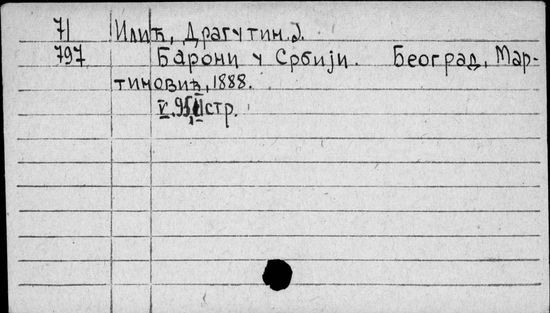 71 Илић, Драгутин. J.
797 Барони у Србији. Београд, Мар-
тиновић, 1888.
V. 95, стр.